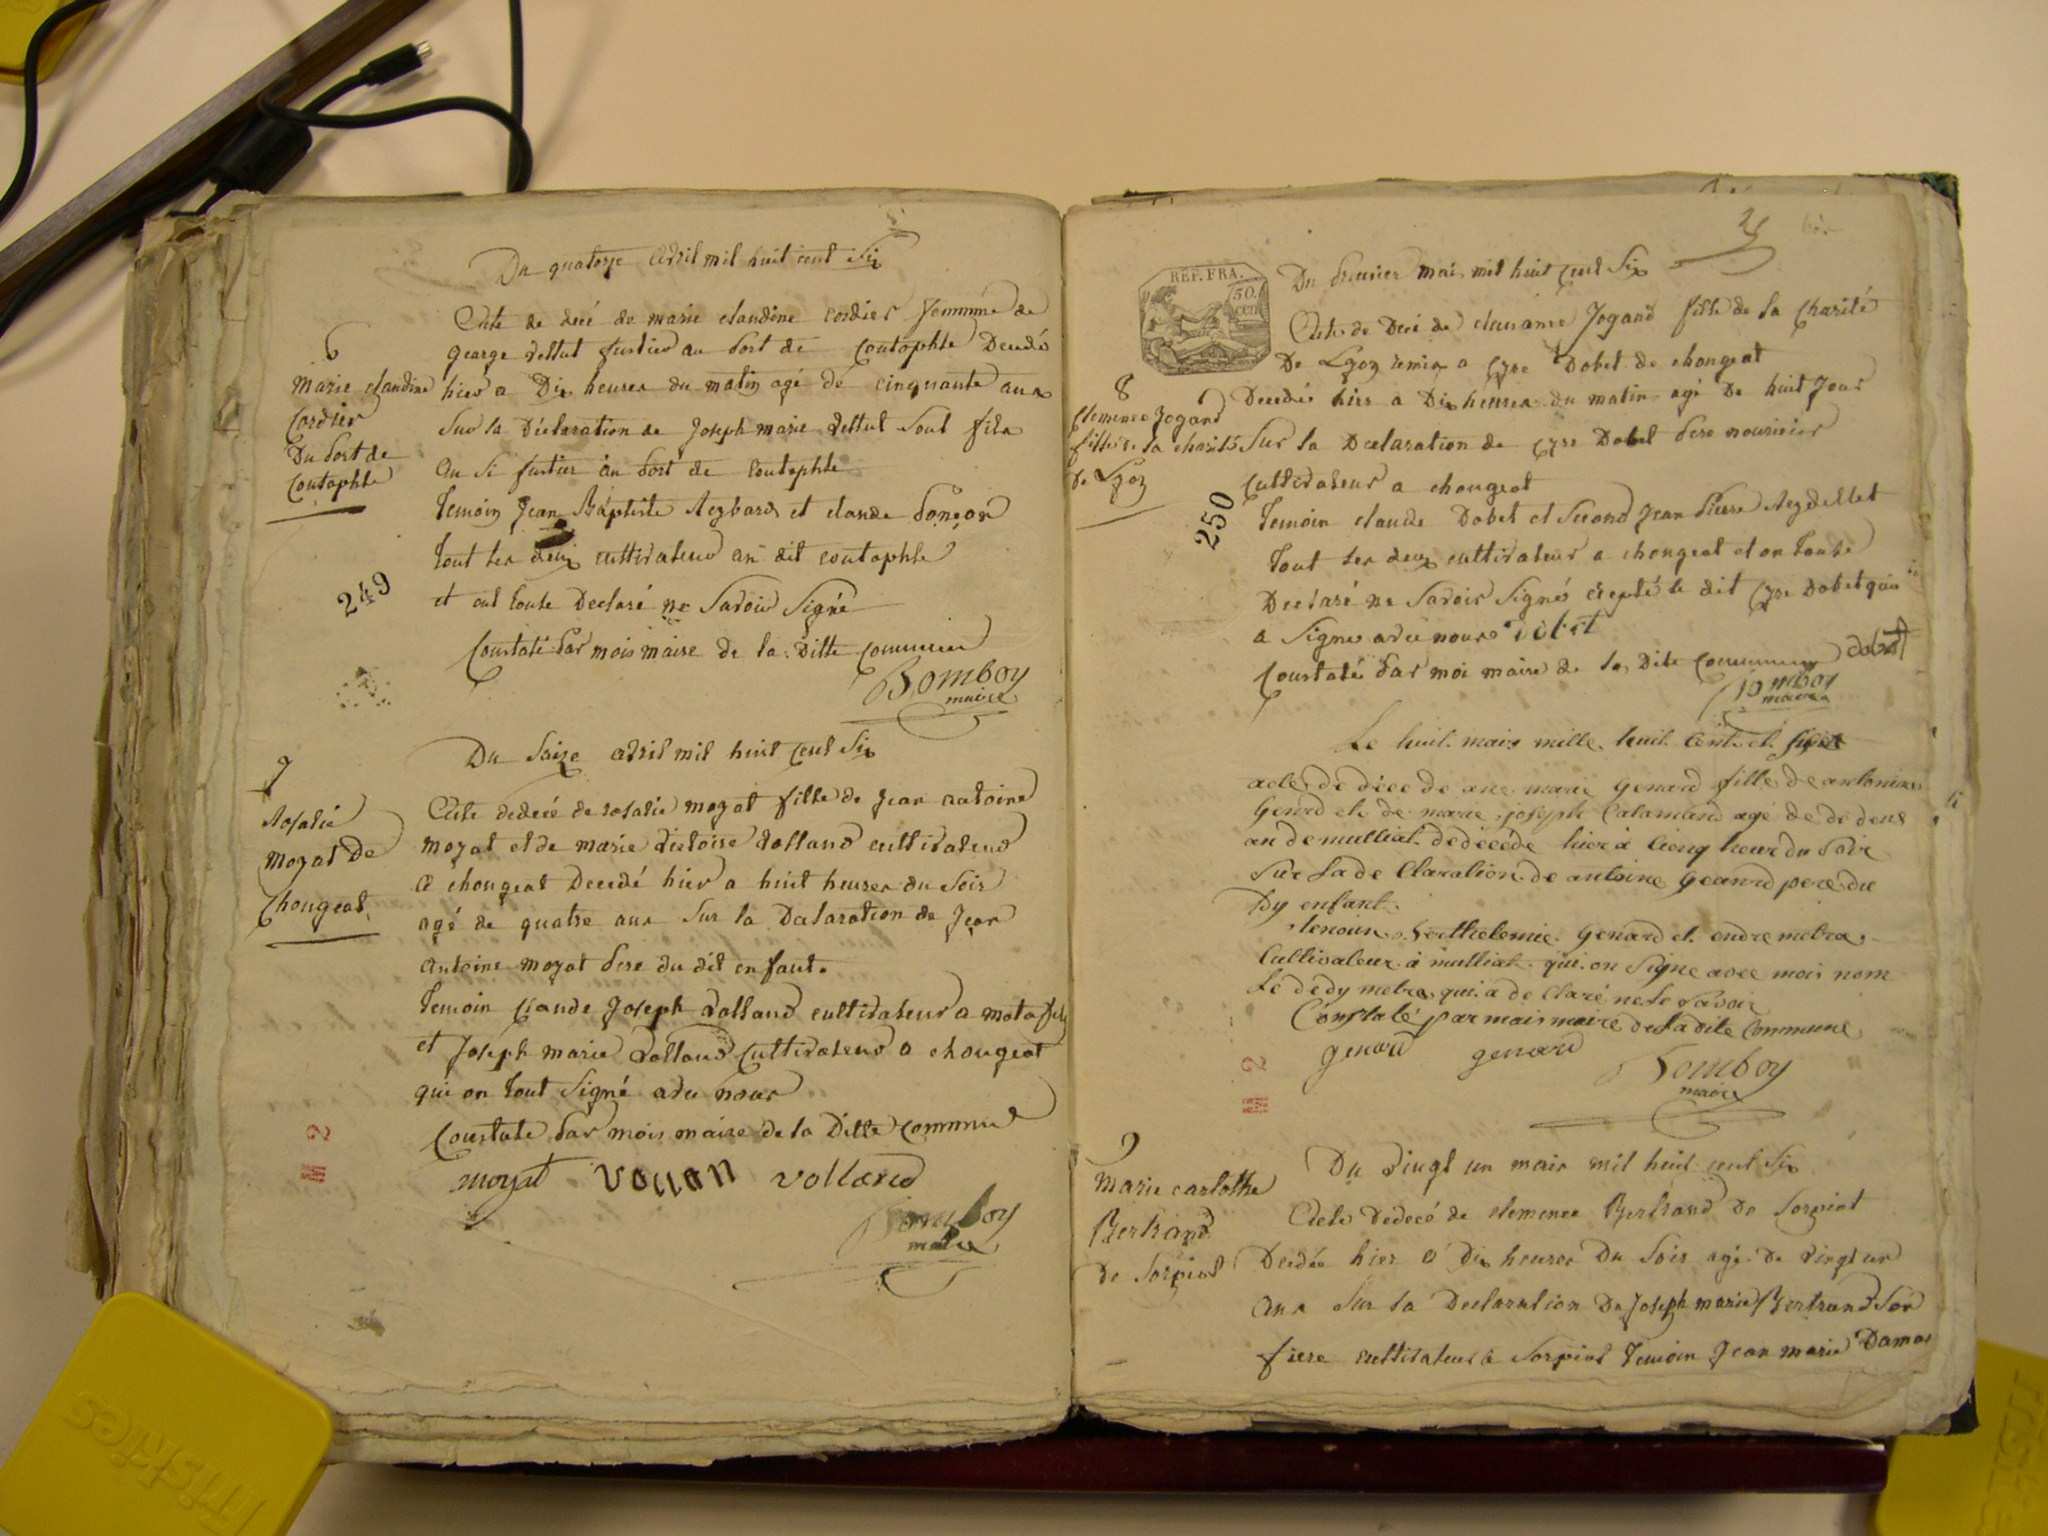 Du quatorze avril mil huit cent Six
6
marie claudine
Cordier
Du port de
Coutophle
Acte de decé de marie claudine cordier femme de
george vellut fustier au port de Coutophle Decedé
hier a Dix heures du matin agé de cinquante ans
Sur la Déclaration de Joseph marie vellut Sout fils
au Si fustier au port de Coutophle
Temoin Jean Baptiste Reybard et claude
Tout les deux cultivateur au dit coutophle
et out toute Declaré ne Savoir Signé
249
Constaté par mois maire de la Ditte Commune
Bomboy
maire
Du Saize avril mil huit cent Six
7
Rosalie
moyat De
Chougeat
Acte dedecé de rosalie moyat fille de Jean antoine
moyat et de marie victoire volland cultivateur
a chougeat Decedé hier a huit heures du Soir
agé de quatre ans Sur la Declaration de Jean
Antoine moyat pere du dit enfant.
Temoin Claude Joseph volland cultivateur a matafelon
et Joseph marie volland Cultivateur a chougeat
qui on tout Signé avec nous
Constate par mois maire de la Ditte commune
moyat volland
Bomboy
maire
REP. FRA.
50
cen
Du premier mai mil huit cent Six
8
Clemence Jogand
fille de la charité
de Lyon
Acte de Decé de Jogand fille de la Charité
De Lyon remis a Dobet de chougeat
Decedée hier a Dix heures du matin agé De huit Jour
Sur la Declaration de Dobet pere nouricier
Cultivateur a chougeat
250
Temoin claude Dobet et Second Jean Pierre Reydellet
Tout les deux cultivateur a chougeat et on toute
Declaré ne Savoir Signés le dit Dobet qui
a Signer avec nous
Constaté par moi maire de la Dite Commune dobet
Bomboy
maire
Le huit mais mille huit Cent et
acte de déce de ane marie genard fille de antoine
Genard et de marie joseph Catamand agé de de deus
an de mulliat dedécéde hier à Cienq heur du Soir
Sur la de Claration de antoine Geanrd pere du
Dy enfant.
temoun Berthelemie Genard et andre metra
Cultivateur à mulliat qui on Signe avec mois nom
Lé dedy metra qui a de Claré ne le Savoir
Constaté par mais maire de la dite Commune
genard genard
Bomboy
maire
9
Marie carlothe
Bertrand
De Sorpiat
Du vingt un mais mil huit cent Six
Acte Dedecé de clemence Bertrand De Sorpiat
Decedée hier a Dix heures Du Soir agé De vingt un
ans Sur la Declaration De Joseph marie Bertrand Son
frere cultivateur a Sorpiat Temoin Jean marie Damas